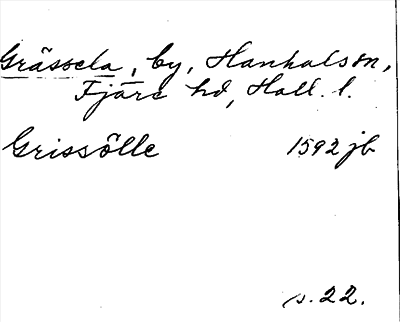 Grässela, by, Hanhals sn,
Fjäre hd, Hall. l.
Grissölle 1592 jb
s. 22.